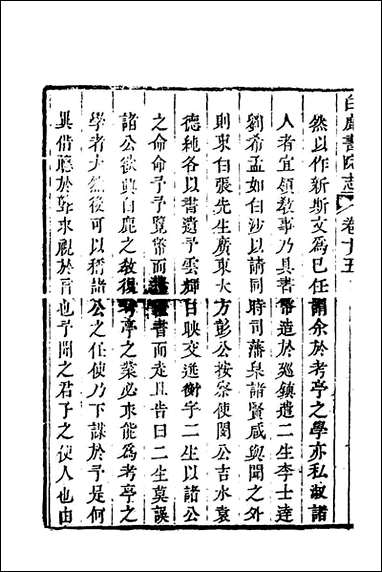 白鹿書院志 卷十五
然以作新斯文爲已任謂余於考亭之學亦私淑諸
人者宜領敎事乃具書幣造於廷鎮遣二生李士達
劉希孟如白沙以請同時司藩臬諸賢咸與聞之外
則東白張先生廣東大方彭公按察使閔公吉水袁
德純各以書遺予雲輝日映交進衡宇二生以諸公
之命命予予覽幣而書而走且告曰二生莫誤
諸公欲興白鹿之敎復考亭之業必求能爲考亭之
學者夫然後可以稱諸公之任使乃下謀於予是何
異借聽於聾求視於盲也予聞之君子之使人也由